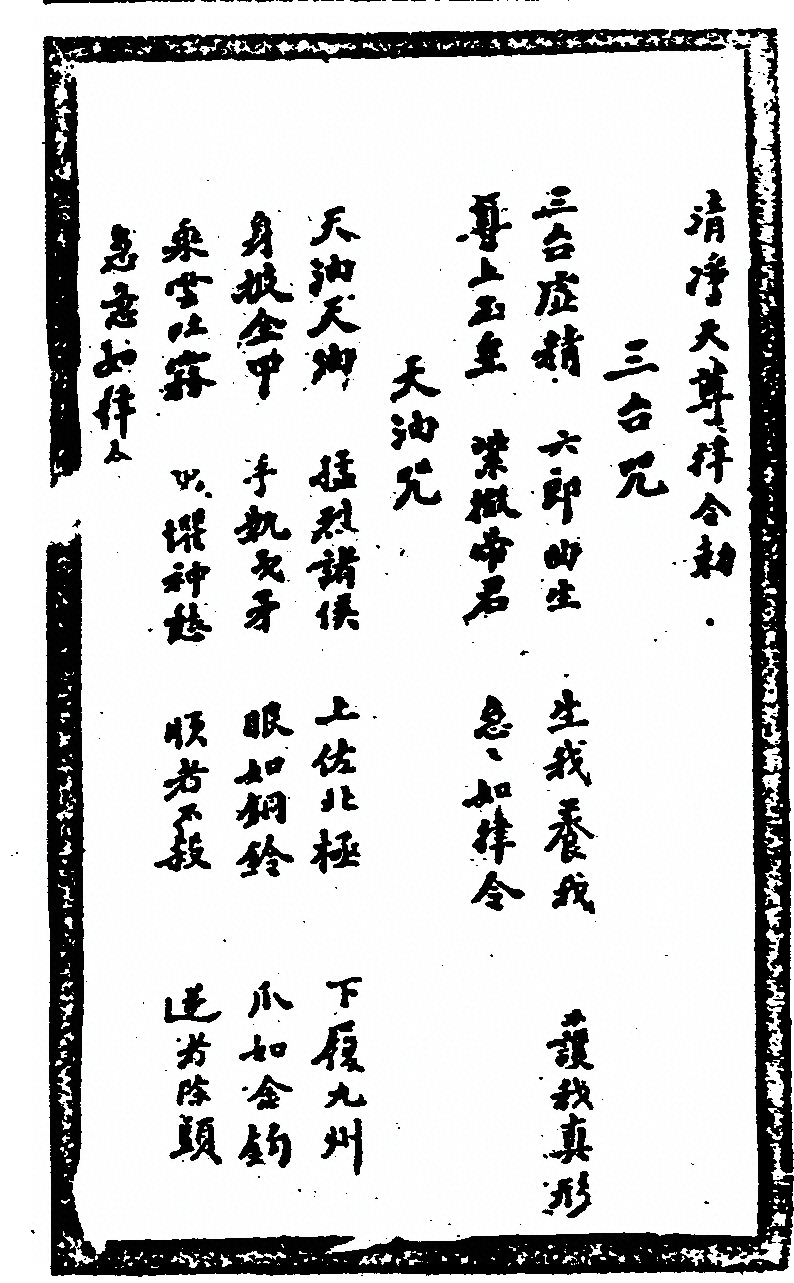 清淨天尊律令勅
三台咒
三台虛精 六郎曲生 生我養我 護我真形
尊上玉皇 紫撤帝君 急〻如律令
天油咒
天油天油 猛烈諸侯 上佐北極 下履九州
身披金甲 手執戈矛 眼如銅鈴 爪如金鈎
乘雲吐霧 懼神愁 順者不殺 逆者除頭
急急如律令